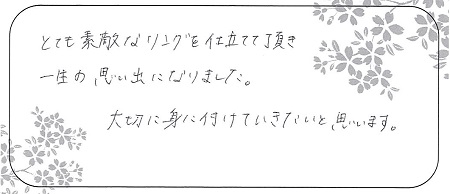 とても素敵なリングを仕立てて頂き
一生の思い出になりました。
大切に身に付けていきたいと思います。